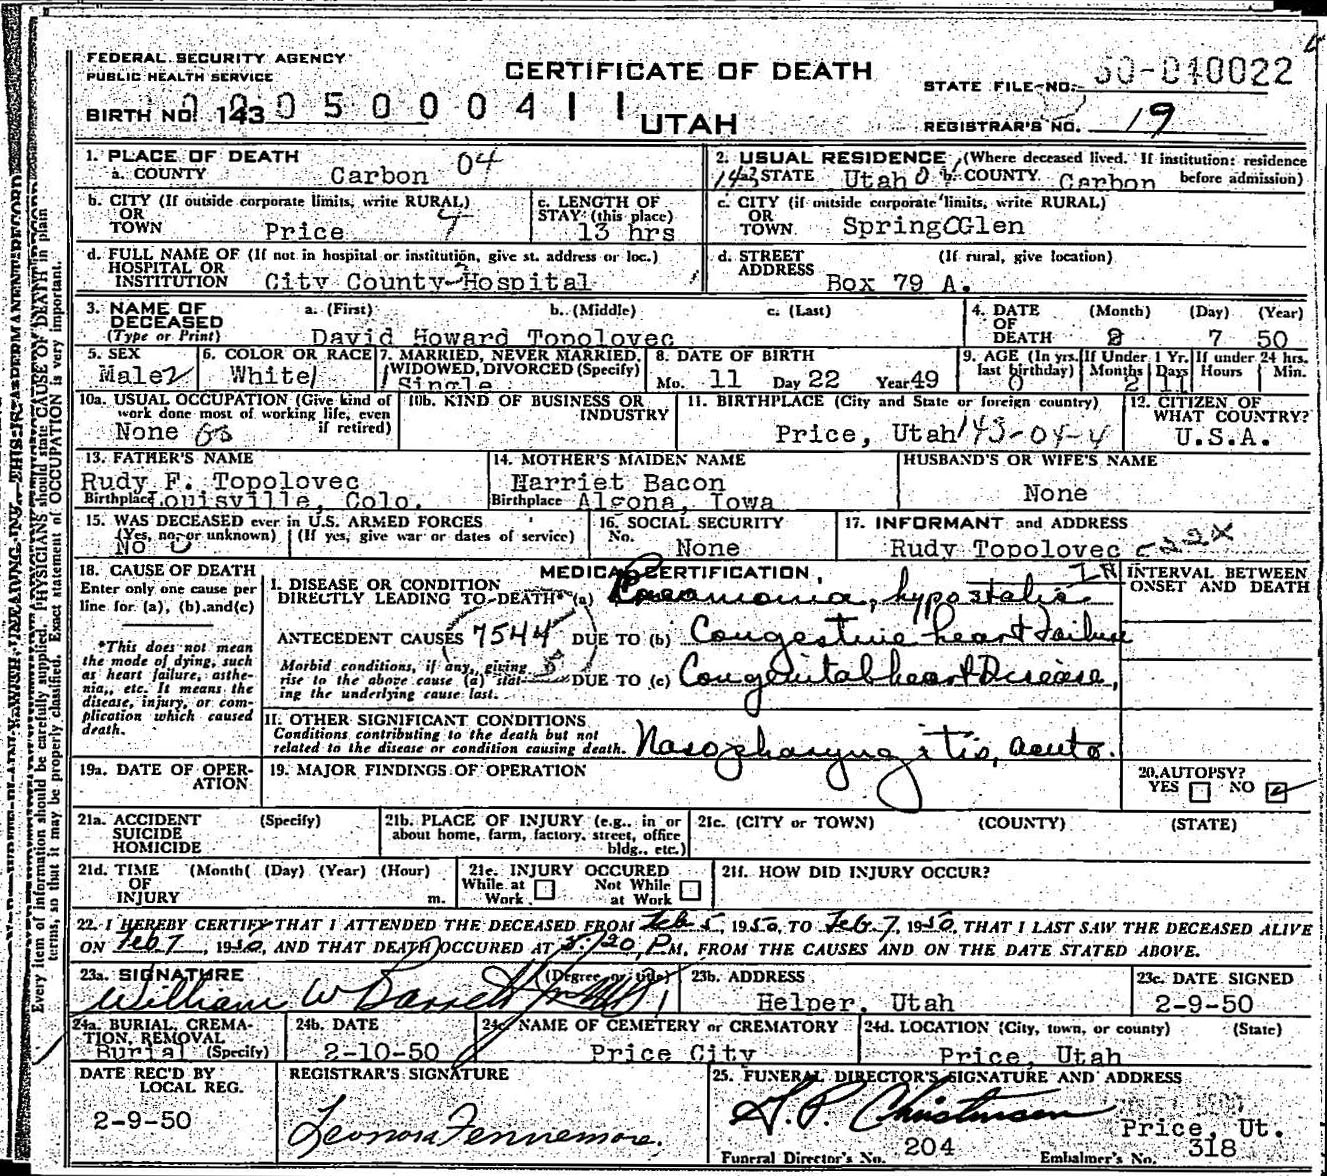 FEDERAL SECURITY AGENCY
PUBLIC HEALTH SERVICE
CERTIFICATE OF DEATH
STATE FILE NO. 50-040022
BIRTH NO. 143 05000411
UTAH
REGISTRAR'S NO. 19
1. PLACE OF DEATH
a. COUNTY Carbon 04
2. USUAL RESIDENCE (Where deceased lived. If institution: residence before admission)
143 a. STATE Utah 04 b. COUNTY Carbon
b. CITY (If outside corporate limits, write RURAL) OR TOWN Price
c. LENGTH OF STAY (this place) 13 hrs
c. CITY (if outside corporate limits, write RURAL) OR TOWN Spring Glen
d. FULL NAME OF (If not in hospital or institution, give st. address or loc.) HOSPITAL OR INSTITUTION City County Hospital
d. STREET ADDRESS (If rural, give location) Box 79 A.
3. NAME OF DECEASED (Type or Print) a. (First) b. (Middle) c. (Last)
David Howard Topolovec
4. DATE OF DEATH (Month) (Day) (Year)
2 7 50
5. SEX Male 2
6. COLOR OR RACE White 1
7. MARRIED, NEVER MARRIED, WIDOWED, DIVORCED (Specify) 1 Single
8. DATE OF BIRTH
Mo. 11 Day 22 Year 49
9. AGE (In yrs. last birthday) 0
If Under 1 Yr. Months 2 Days 11
If under 24 hrs. Hours Min.
10a. USUAL OCCUPATION (Give kind of work done most of working life, even if retired) None
10b. KIND OF BUSINESS OR INDUSTRY
11. BIRTHPLACE (City and State or foreign country)
Price, Utah 143-04-4
12. CITIZEN OF WHAT COUNTRY?
U.S.A.
13. FATHER'S NAME
Rudy F. Topolovec
Birthplace Louisville, Colo.
14. MOTHER'S MAIDEN NAME
Harriet Bacon
Birthplace Algona, Iowa
HUSBAND'S OR WIFE'S NAME
None
15. WAS DECEASED ever in U.S. ARMED FORCES
(Yes, no, or unknown) (If yes, give war or dates of service)
No 0
16. SOCIAL SECURITY No. None
17. INFORMANT and ADDRESS
Rudy Topolovec
18. CAUSE OF DEATH
Enter only one cause per line for (a), (b), and (c)
*This does not mean the mode of dying, such as heart failure, asthenia, etc. It means the disease, injury, or complication which caused death.
MEDICAL CERTIFICATION
INTERVAL BETWEEN ONSET AND DEATH
I. DISEASE OR CONDITION DIRECTLY LEADING TO DEATH* (a) Pneumonia, hypostatic
ANTECEDENT CAUSES 7544 DUE TO (b) Congestive heart failure
Morbid conditions, if any, giving rise to the above cause (a) stating the underlying cause last. DUE TO (c) Congenital heart Disease,
II. OTHER SIGNIFICANT CONDITIONS
Conditions contributing to the death but not related to the disease or condition causing death. Nasopharyngitis, acute.
19a. DATE OF OPERATION
19. MAJOR FINDINGS OF OPERATION
20. AUTOPSY? YES NO
21a. ACCIDENT SUICIDE HOMICIDE (Specify)
21b. PLACE OF INJURY (e.g., in or about home, farm, factory, street, office bldg., etc.)
21c. (CITY or TOWN) (COUNTY) (STATE)
21d. TIME OF INJURY (Month( (Day) (Year) (Hour) m.
21e. INJURY OCCURED While at Work Not While at Work
21f. HOW DID INJURY OCCUR?
22. I HEREBY CERTIFY THAT I ATTENDED THE DECEASED FROM Feb 5, 1950, TO Feb. 7, 1950, THAT I LAST SAW THE DECEASED ALIVE
ON Feb 7, 1950, AND THAT DEATH OCCURED AT 5:20, P.M. FROM THE CAUSES AND ON THE DATE STATED ABOVE.
23a. SIGNATURE (Degree or title)
William W Barrett Jr. M.D.
23b. ADDRESS
Helper, Utah
23c. DATE SIGNED
2-9-50
24a. BURIAL, CREMATION, REMOVAL (Specify) Burial
24b. DATE
2-10-50
24c. NAME OF CEMETERY or CREMATORY
Price City
24d. LOCATION (City, town, or county) (State)
Price, Utah
DATE REC'D BY LOCAL REG.
2-9-50
REGISTRAR'S SIGNATURE
Leonora Fennemore.
25. FUNERAL DIRECTOR'S SIGNATURE AND ADDRESS
Christensen
Price, Ut.
Funeral Director's No. 204 Embalmer's No. 318